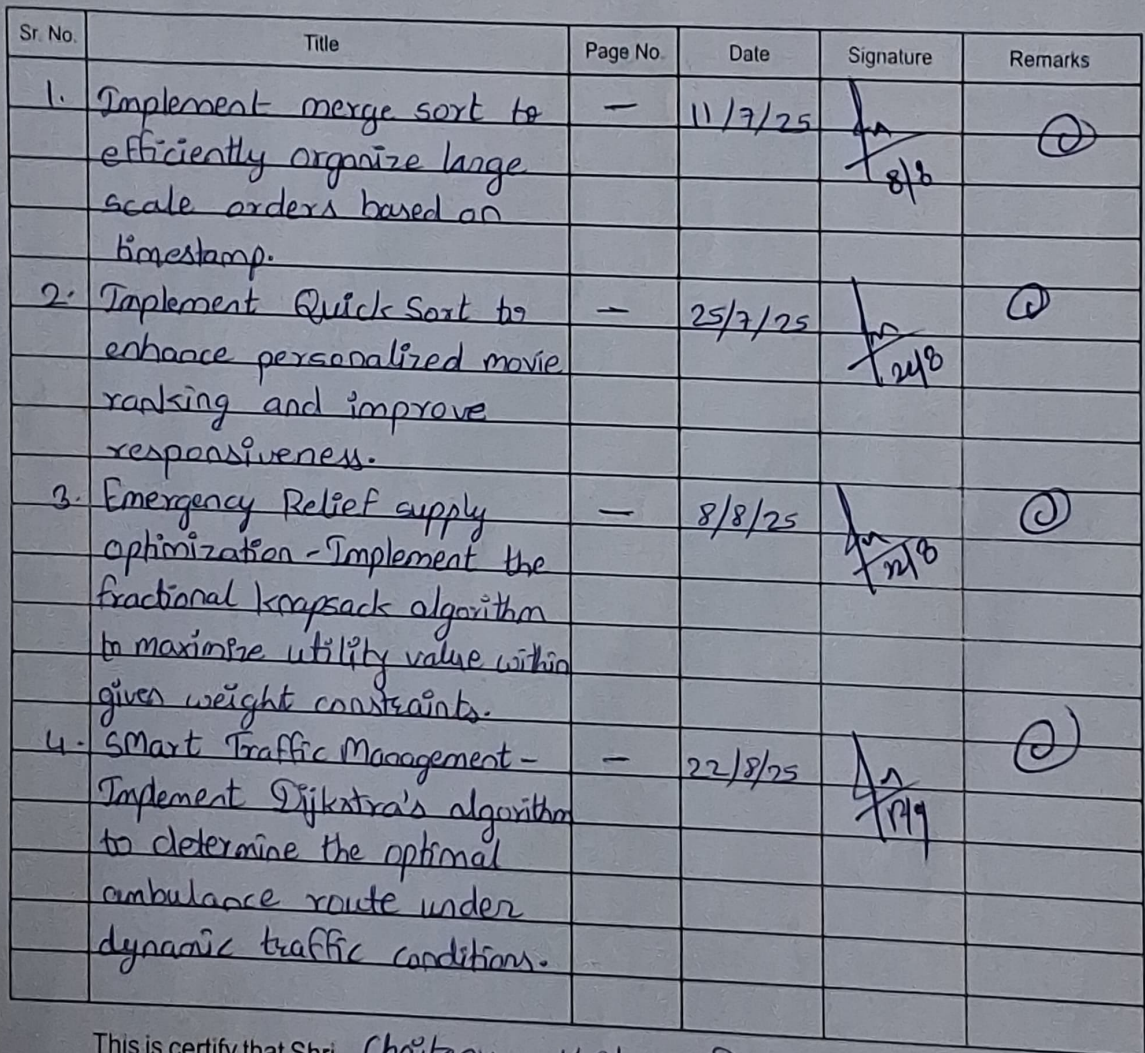 Sr. No. Title Page No. Date Signature Remarks
1. Implement merge sort to — 11/7/25
efficiently organize large 8/8
scale orders based on
timestamp.
2. Implement Quick Sort to — 25/7/25
enhance personalized movie
ranking and improve
responsiveness.
3. Emergency Relief supply — 8/8/25
optimization - Implement the
fractional knapsack algorithm
to maximize utility value within
given weight constraints.
4. Smart Traffic Management - — 22/8/25
Implement Dijkstra's algorithm
to determine the optimal
ambulance route under
dynamic traffic conditions.
This is certify that Shri